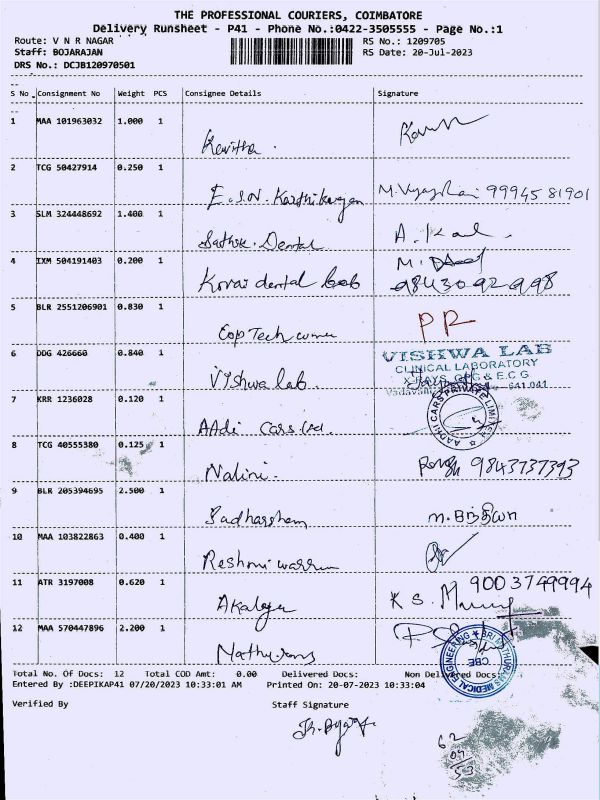 THE PROFESSIONAL COURIERS, COIMBATORE
Delivery Runsheet - P41 - Phone No.:0422-3505555 - Page No.:1
Route: V N R NAGAR RS No.: 1209705
Staff: BOJARAJAN RS Date: 20-Jul-2023
DRS No.: DCJB120970501
S No Consignment No Weight PCS Consignee Details Signature
1 MAA 101963032 1.000 1
Kavitha.
2 TCG 50427914 0.250 1
E.S.N. Karthikeyan 99945 81901
3 SLM 324448692 1.400 1
Sathik. Dental A.
4 IXM 504191403 0.200 1 M.
Kovai dental lab 98430 92998
5 BLR 2551206901 0.830 1
Cop Tech PR
6 DDG 426660 0.840 1 VISHWA LAB
CLINICAL LABORATORY
X-RAYS, OPG & E.C.G
Vishwa lab. Vadavalli 641 041
7 KRR 1236028 0.120 1
AAdi Cars Ltd. AADHI CARS PRIVATE LIMITED
8 TCG 40555380 0.125 1
Nalini. 9843737393
9 BLR 205394695 2.500 1
Sadharsham
10 MAA 103822863 0.400 1
Reshmi
11 ATR 3197008 0.620 1 9003749994
Akalaya K S.
12 MAA 570447896 2.200 1
MEDICAL ENGINEERING CBE
Total No. Of Docs: 12 Total COD Amt: 0.00 Delivered Docs: Non Delivered Docs:
Entered By :DEEPIKAP41 07/20/2023 10:33:01 AM Printed On: 20-07-2023 10:33:04
Verified By Staff Signature
62
09
53